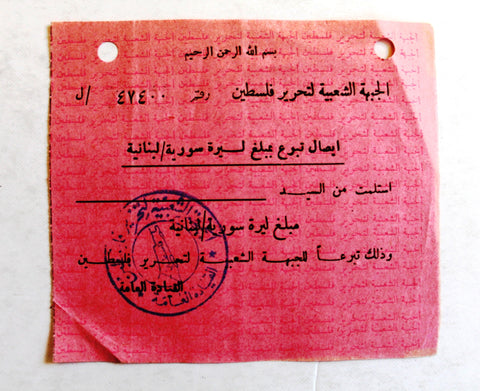 بسم الله الرحمن الرحيم
الجبهة الشعبية لتحرير فلسطين دفتر ٤٧٤٠٠ /ل
ايصال تبرع بمبلغ ليرة سورية/لبنانية
استلمت من السيد
مبلغ ليرة سورية/لبنانية
وذلك تبرعاً للجبهة الشعبية لتحرير فلسطين
القيادة العامة
القيادة العامة